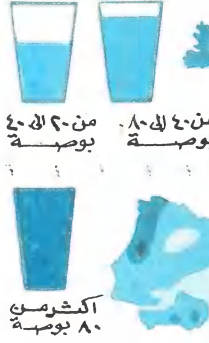 من ٤٠ إلى ٨٠
بوصة
من ٢٠ إلى ٤٠
بوصة
اكثر من
٨٠ بوصة